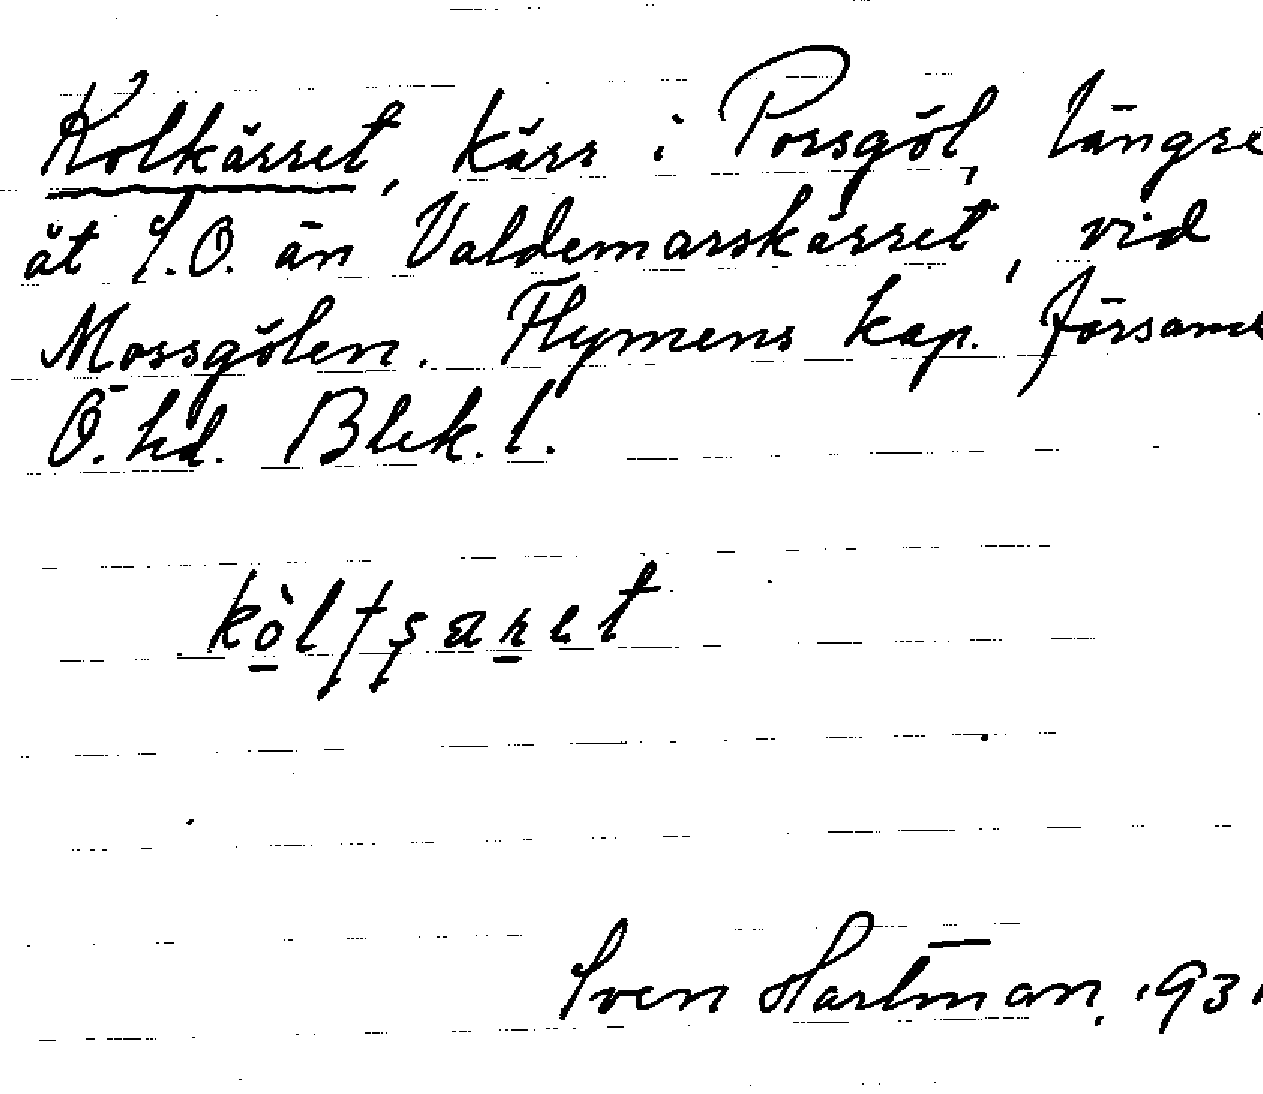 Kolkärret, kärr i Porsgöl, längre
åt S.O. än Valdemarskärret, vid
Mossgölen. Flymens kap. förssaml
Ö. hd. Blek. l.
Sven Hartman. 1931